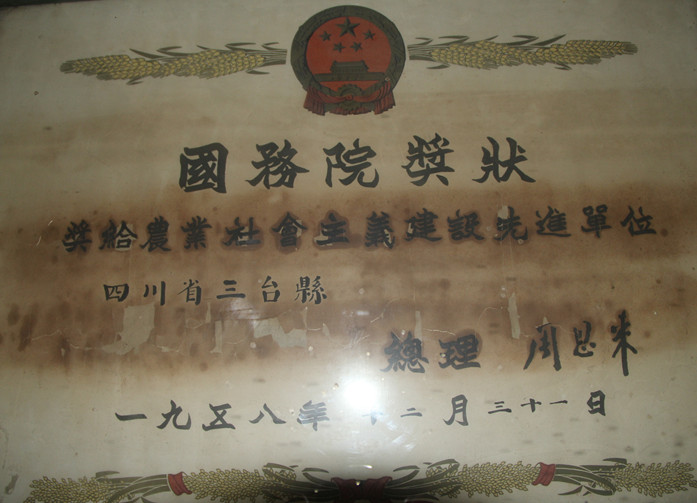 國務院獎狀
獎給農業社會主義建設先進單位
四川省三台縣
總理 周恩来
一九五八年十二月三十一日